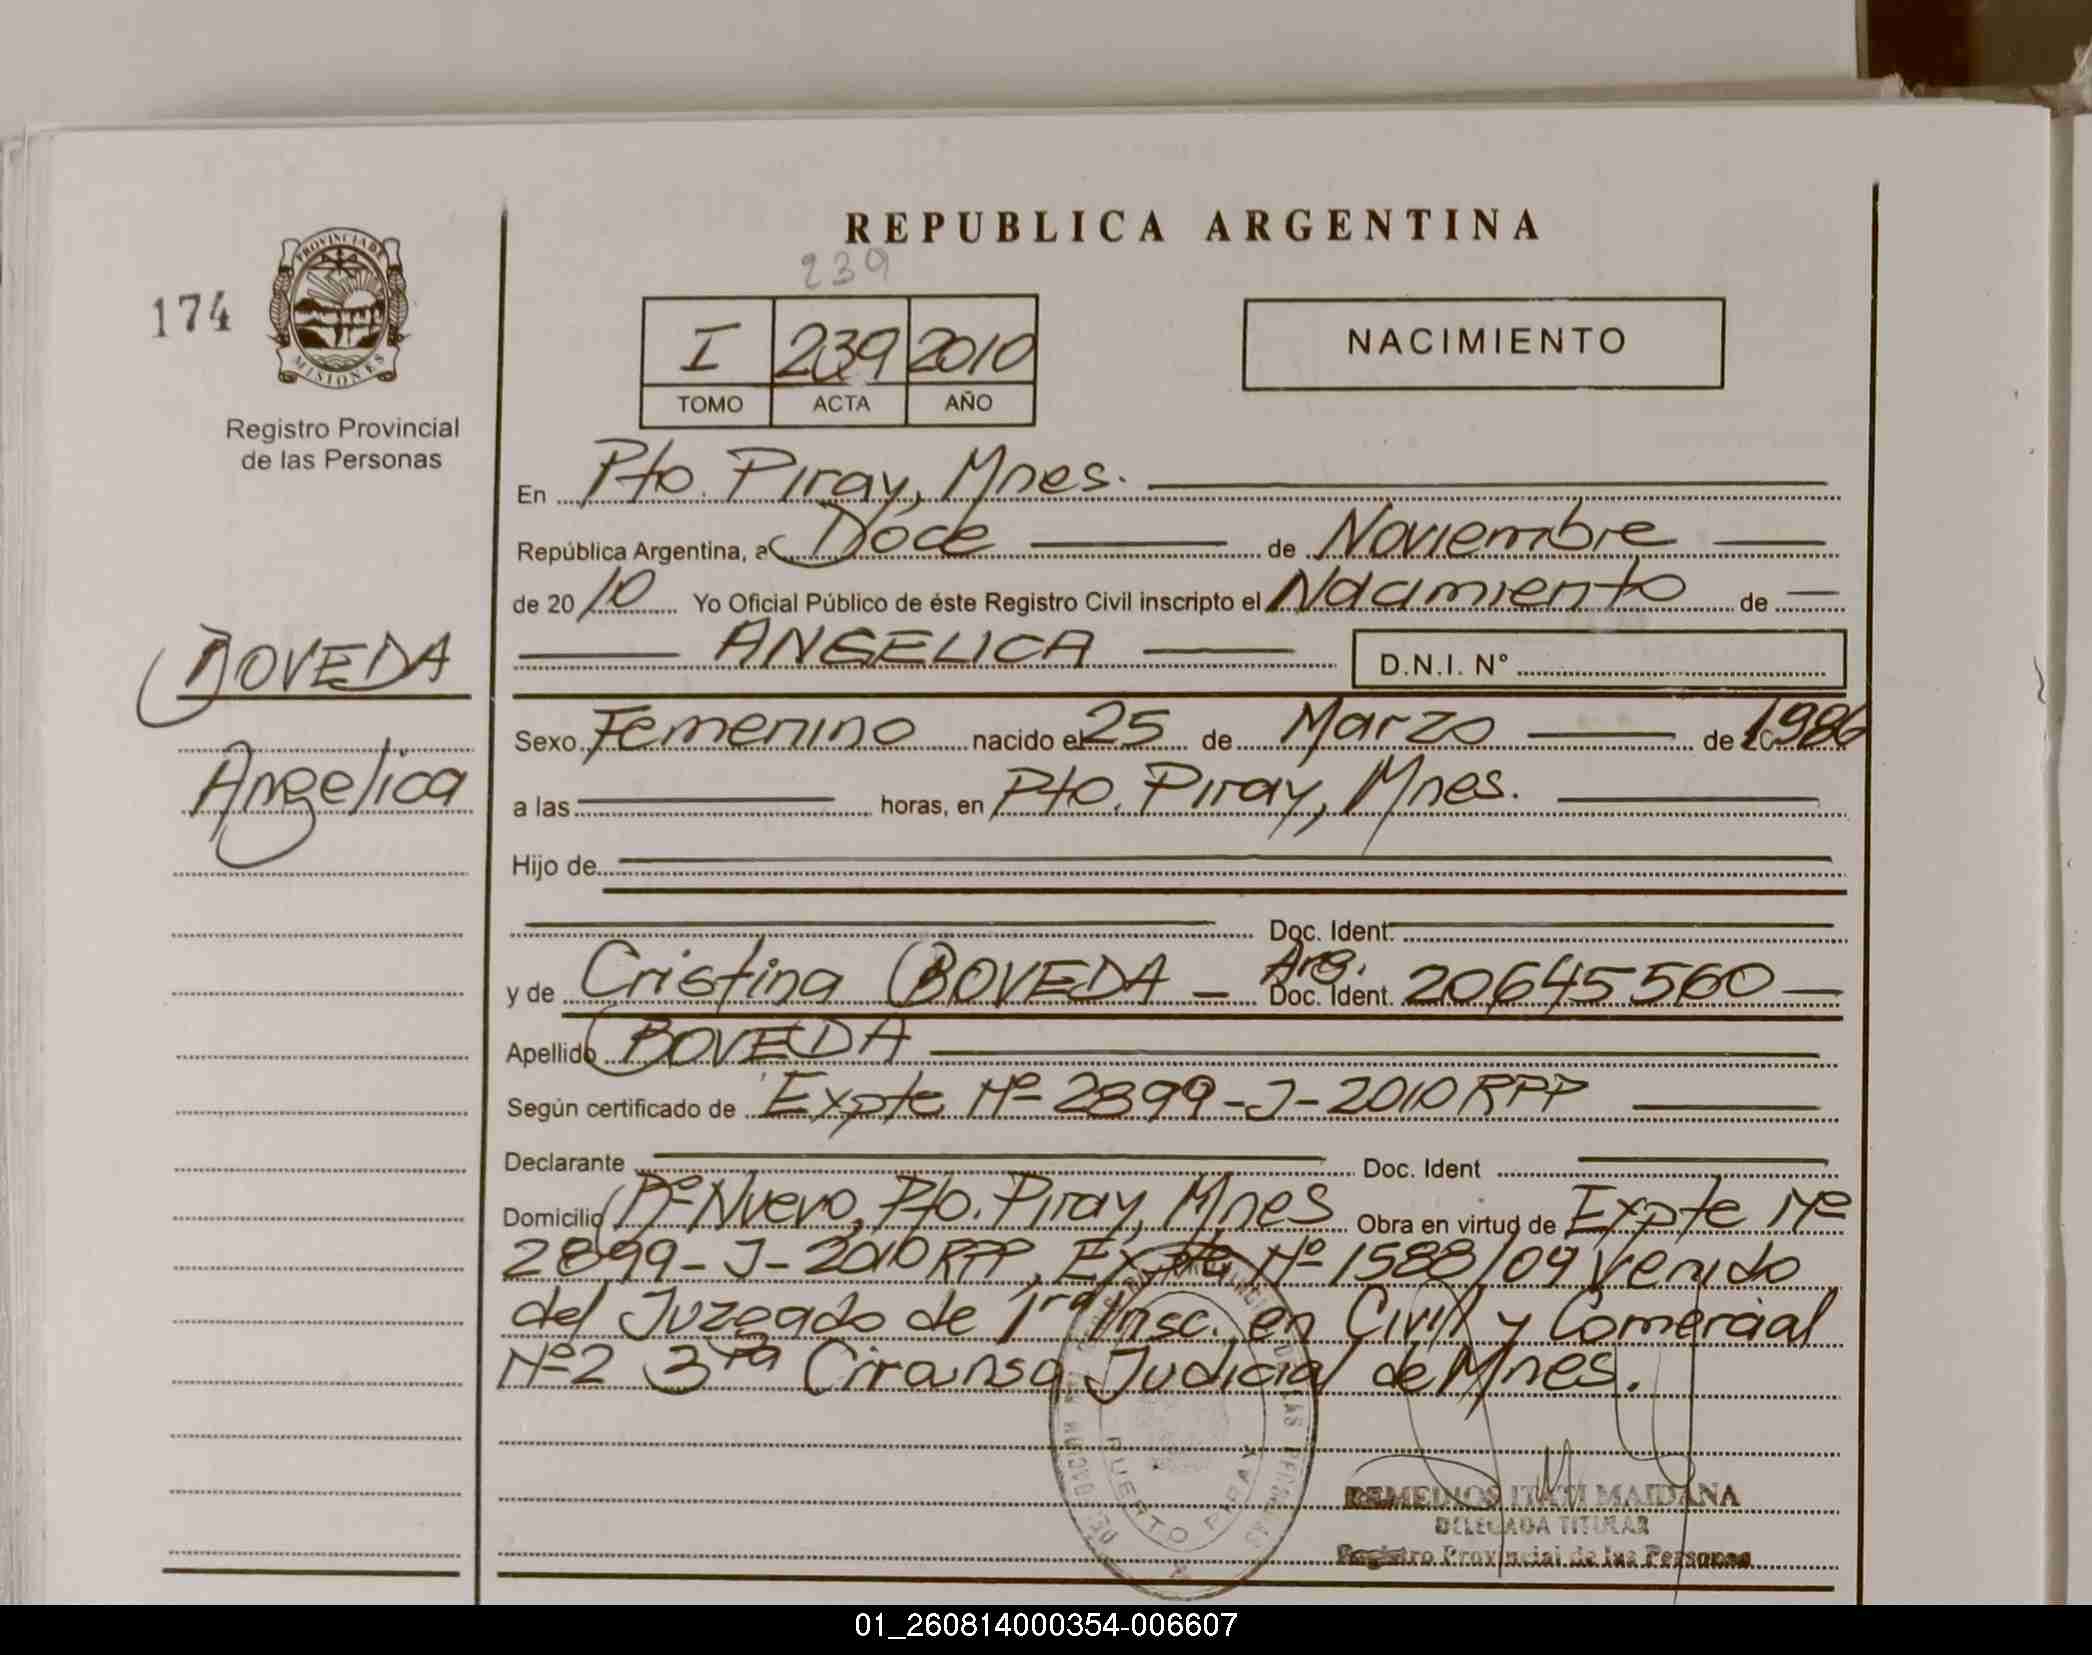 REPUBLICA ARGENTINA
239
174
PROVINCIA DE
MISIONES
I 239 2010
TOMO ACTA AÑO
NACIMIENTO
Registro Provincial
de las Personas
En Pto. Piray, Mnes.
República Argentina, a Doce de Noviembre
de 20 10 Yo Oficial Público de éste Registro Civil inscripto el Nacimiento de
ANGELICA D.N.I. N°
BOVEDA
Angelica
Sexo Femenino nacido el 25 de Marzo de 1986
a las horas, en Pto. Piray, Mnes.
Hijo de
Doc. Ident.
y de Cristina BOVEDA Arg. Doc. Ident. 20645560
Apellido BOVEDA
Según certificado de Expte Nº 2899-J-2010 RPP
Declarante Doc. Ident
Domicilio Bº Nuevo, Pto. Piray, Mnes Obra en virtud de Expte Nº
2899-J-2010 RPP, Expte Nº 1588/09 venido
del Juzgado de 1ra Insc. en Civil y Comercial
Nº2 3ra Circunsc Judicial de Mnes.
PUERTO PIRAY
REMEDIOS ITATI MAIDANA
DELEGADA TITULAR
Registro Provincial de las Personas
01_260814000354-006607